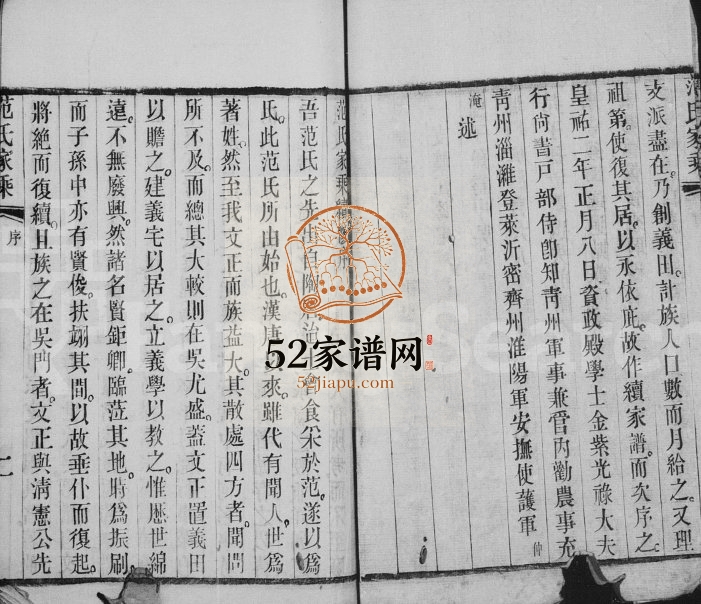 范氏家乘
支派盡在乃創義田計族人口數而月給之又理
祖第使復其居以永依庇故作續家譜而次序之
皇祐二年正月八日資政殿學士金紫光祿大夫
行尚書戶部侍郎知青州軍事兼管內勸農事充
青州淄濰登萊沂密齊州淮陽軍安撫使護軍仲
淹述
范氏家乘
吾范氏之先
食采於范遂以爲
氏此范氏所由始也漢唐
來雖代有聞人世爲
著姓然至我文正而族益大其散處四方者聞問
所不及而總其大較則在吳尤盛蓋文正置義田
以贍之建義宅以居之立義學以教之惟歷世綿
遠不無廢興然諸名賢鉅卿臨蒞其地時爲振刷
而子孫中亦有賢俊扶翊其間以故垂仆而復起
將絶而復續且族之在吳門者文正與清憲公先
范氏家乘
序
52家谱网
52jiapu.com